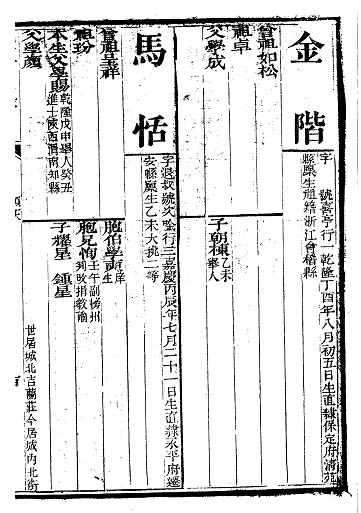 金階
字 號喜亭行一乾隆丁酉年八月初五日生直隸保定府清苑
縣廩生祖籍浙江會稽縣
曾祖如松
祖卓
父學成
子朝棟乙未舉人
馬恬
字退叔號次
行三嘉慶丙辰年七月二十一日生直隸永平府遷
安縣廩生乙未大挑二等
曾祖呈祥
祖玢
本生父學賜乾隆戊申舉人癸丑進士陝西渭南知縣
父學顏
胞伯學
庠生
胞兄恂壬午副榜州判改指教諭
子燿星 鍾星
世居城北吉蘭莊今居城內北街